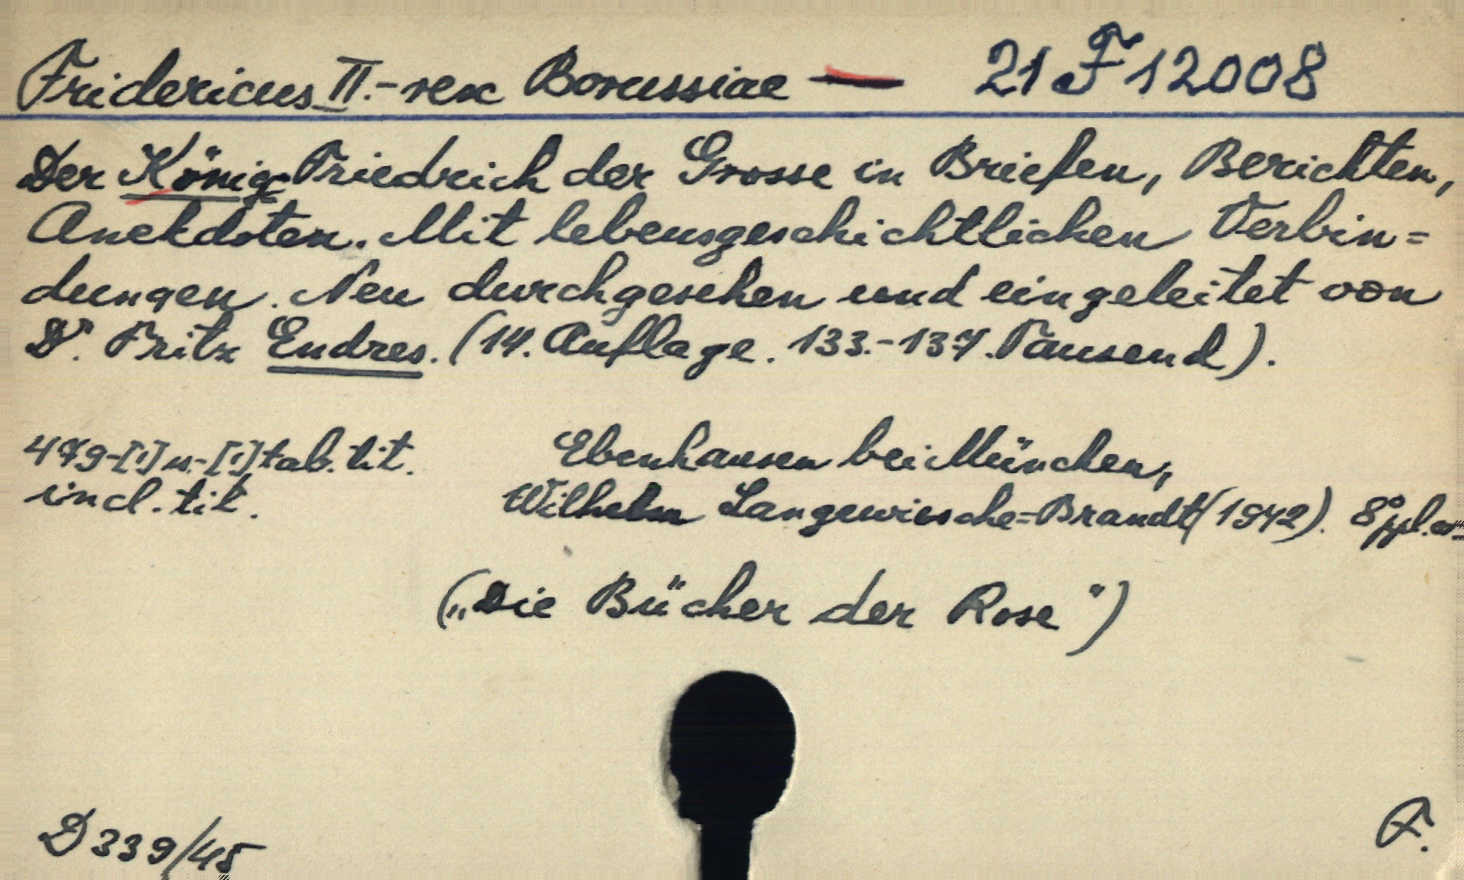 Fridericus II.-rex Borussiae — 21 F 12008
Der König Friedrich der Grosse in Briefen, Berichten,
Anekdoten. Mit lebensgeschichtlichen Verbin=
dungen. Neu durchgesehen und eingeleitet von
Dr. Fritz Endres. (14. Auflage. 133.-137. Tausend).
479-[1] u.-[1] tab. tit. Ebenhausen bei München,
incl. tit. Wilhelm Langewiesche=Brandt (1942). 8°
(„Die Bücher der Rose")
D 339/45
F.